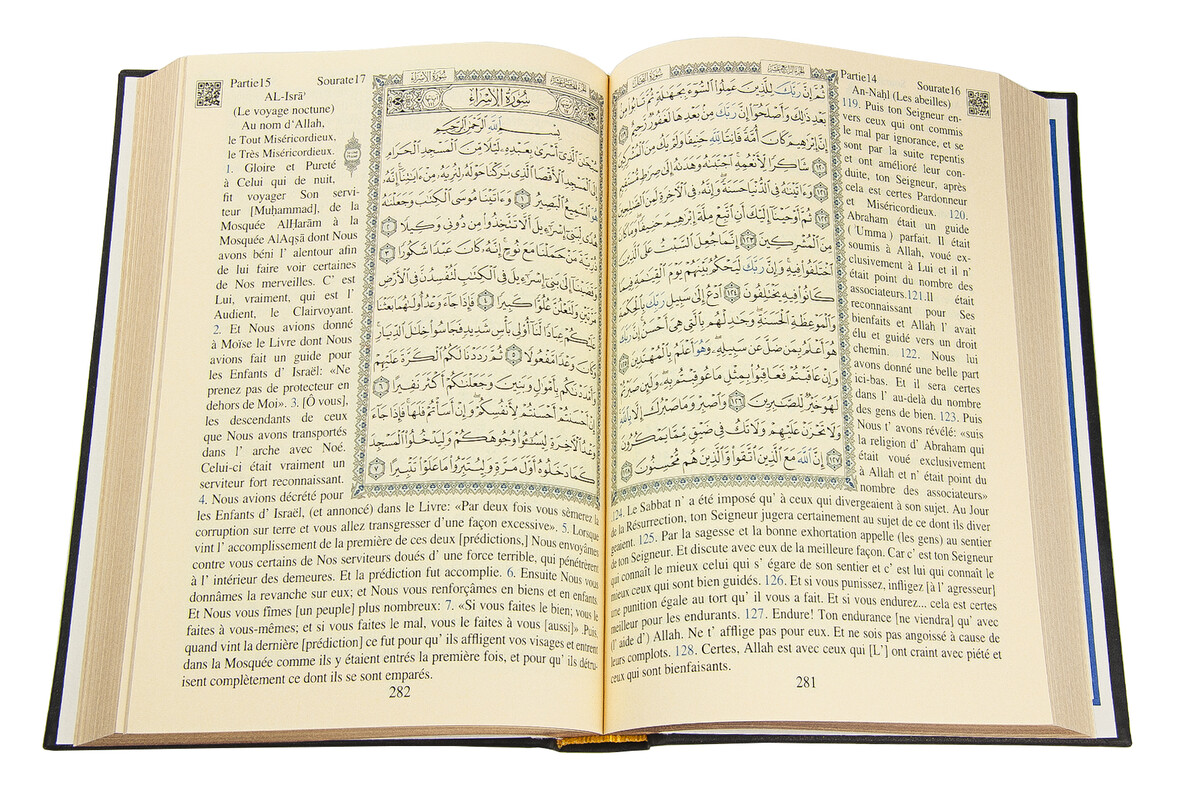 Partie14 Sourate16
An-Naḥl (Les abeilles)
ثُمَّ إِنَّ رَبَّكَ لِلَّذِينَ عَمِلُوا۟ ٱلسُّوٓءَ بِجَهَـٰلَةٍ ثُمَّ تَابُوا۟ مِنۢ
بَعْدِ ذَٰلِكَ وَأَصْلَحُوٓا۟ إِنَّ رَبَّكَ مِنۢ بَعْدِهَا لَغَفُورٌ رَّحِيمٌ
إِنَّ إِبْرَٰهِيمَ كَانَ أُمَّةً قَانِتًا لِّلَّهِ حَنِيفًا وَلَمْ يَكُ مِنَ ٱلْمُشْرِكِينَ
١٢٠ شَاكِرًا لِّأَنْعُمِهِ ٱجْتَبَىٰهُ وَهَدَىٰهُ إِلَىٰ صِرَٰطٍ مُّسْتَقِيمٍ
١٢١ وَءَاتَيْنَـٰهُ فِى ٱلدُّنْيَا حَسَنَةً وَإِنَّهُۥ فِى ٱلْـَٔاخِرَةِ لَمِنَ ٱلصَّـٰلِحِينَ
١٢٢ ثُمَّ أَوْحَيْنَآ إِلَيْكَ أَنِ ٱتَّبِعْ مِلَّةَ إِبْرَٰهِيمَ حَنِيفًا وَمَا كَانَ
مِنَ ٱلْمُشْرِكِينَ ١٢٣ إِنَّمَا جُعِلَ ٱلسَّبْتُ عَلَى ٱلَّذِينَ
ٱخْتَلَفُوا۟ فِيهِ وَإِنَّ رَبَّكَ لَيَحْكُمُ بَيْنَهُمْ يَوْمَ ٱلْقِيَـٰمَةِ فِيمَا
كَانُوا۟ فِيهِ يَخْتَلِفُونَ ١٢٤ ٱدْعُ إِلَىٰ سَبِيلِ رَبِّكَ بِٱلْحِكْمَةِ
وَٱلْمَوْعِظَةِ ٱلْحَسَنَةِ وَجَـٰدِلْهُم بِٱلَّتِى هِىَ أَحْسَنُ إِنَّ رَبَّكَ
هُوَ أَعْلَمُ بِمَن ضَلَّ عَن سَبِيلِهِۦ وَهُوَ أَعْلَمُ بِٱلْمُهْتَدِينَ ١٢٥
وَإِنْ عَاقَبْتُمْ فَعَاقِبُوا۟ بِمِثْلِ مَا عُوقِبْتُم بِهِۦ وَلَئِن صَبَرْتُمْ
لَهُوَ خَيْرٌ لِّلصَّـٰبِرِينَ ١٢٦ وَٱصْبِرْ وَمَا صَبْرُكَ إِلَّا بِٱللَّهِ
وَلَا تَحْزَنْ عَلَيْهِمْ وَلَا تَكُ فِى ضَيْقٍ مِّمَّا يَمْكُرُونَ
١٢٧ إِنَّ ٱللَّهَ مَعَ ٱلَّذِينَ ٱتَّقَوا۟ وَّٱلَّذِينَ هُم مُّحْسِنُونَ ١٢٨
119. Puis ton Seigneur en-
vers ceux qui ont commis
le mal par ignorance, et se
sont par la suite repentis
et ont amélioré leur con-
duite, ton Seigneur, après
cela est certes Pardonneur
et Miséricordieux. 120.
Abraham était un guide
('Umma) parfait. Il était
soumis à Allah, voué ex-
clusivement à Lui et il n'
était point du nombre des
associateurs.121.Il était
reconnaissant pour Ses
bienfaits et Allah l' avait
élu et guidé vers un droit
chemin. 122. Nous lui
avons donné une belle part
ici-bas. Et il sera certes
dans l' au-delà du nombre
des gens de bien. 123. Puis
Nous t' avons révélé: «suis
la religion d' Abraham qui
était voué exclusivement
à Allah et n' était point du
nombre des associateurs»
124. Le Sabbat n' a été imposé qu' à ceux qui divergeaient à son sujet. Au Jour
de la Résurrection, ton Seigneur jugera certainement au sujet de ce dont ils diver
geaient. 125. Par la sagesse et la bonne exhortation appelle (les gens) au sentier
de ton Seigneur. Et discute avec eux de la meilleure façon. Car c' est ton Seigneur
qui connaît le mieux celui qui s' égare de son sentier et c' est lui qui connaît le
mieux ceux qui sont bien guidés. 126. Et si vous punissez, infligez [à l' agresseur]
une punition égale au tort qu' il vous a fait. Et si vous endurez... cela est certes
meilleur pour les endurants. 127. Endure! Ton endurance [ne viendra] qu' avec
(l' aide d') Allah. Ne t' afflige pas pour eux. Et ne sois pas angoissé à cause de
leurs complots. 128. Certes, Allah est avec ceux qui [L'] ont craint avec piété et
ceux qui sont bienfaisants.
281
Partie15 Sourate17
AL-Isrā'
(Le voyage nocture)
Au nom d'Allah,
le Tout Miséricordieux.
le Très Miséricordieux.
سُورَةُ الإِسْرَاءِ
سُورَةُ الإِسْرَاءِ
بِسْمِ ٱللَّهِ ٱلرَّحْمَـٰنِ ٱلرَّحِيمِ
سُبْحَـٰنَ ٱلَّذِىٓ أَسْرَىٰ بِعَبْدِهِۦ لَيْلًا مِّنَ ٱلْمَسْجِدِ ٱلْحَرَامِ
إِلَى ٱلْمَسْجِدِ ٱلْأَقْصَا ٱلَّذِى بَـٰرَكْنَا حَوْلَهُۥ لِنُرِيَهُۥ مِنْ ءَايَـٰتِنَآ إِنَّهُۥ
هُوَ ٱلسَّمِيعُ ٱلْبَصِيرُ ١ وَءَاتَيْنَا مُوسَى ٱلْكِتَـٰبَ وَجَعَلْنَـٰهُ
هُدًى لِّبَنِىٓ إِسْرَٰٓءِيلَ أَلَّا تَتَّخِذُوا۟ مِن دُونِى وَكِيلًا ٢
ذُرِّيَّةَ مَنْ حَمَلْنَا مَعَ نُوحٍ إِنَّهُۥ كَانَ عَبْدًا شَكُورًا ٣
وَقَضَيْنَآ إِلَىٰ بَنِىٓ إِسْرَٰٓءِيلَ فِى ٱلْكِتَـٰبِ لَتُفْسِدُنَّ فِى ٱلْأَرْضِ
مَرَّتَيْنِ وَلَتَعْلُنَّ عُلُوًّا كَبِيرًا ٤ فَإِذَا جَآءَ وَعْدُ أُولَىٰهُمَا بَعَثْنَا
عَلَيْكُمْ عِبَادًا لَّنَآ أُو۟لِى بَأْسٍ شَدِيدٍ فَجَاسُوا۟ خِلَـٰلَ ٱلدِّيَارِ
وَكَانَ وَعْدًا مَّفْعُولًا ٥ ثُمَّ رَدَدْنَا لَكُمُ ٱلْكَرَّةَ عَلَيْهِمْ
وَأَمْدَدْنَـٰكُم بِأَمْوَٰلٍ وَبَنِينَ وَجَعَلْنَـٰكُمْ أَكْثَرَ نَفِيرًا ٦
إِنْ أَحْسَنتُمْ أَحْسَنتُمْ لِأَنفُسِكُمْ وَإِنْ أَسَأْتُمْ فَلَهَا فَإِذَا جَآءَ
وَعْدُ ٱلْـَٔاخِرَةِ لِيَسُـۥٓـُٔوا۟ وُجُوهَكُمْ وَلِيَدْخُلُوا۟ ٱلْمَسْجِدَ
كَمَا دَخَلُوهُ أَوَّلَ مَرَّةٍ وَلِيُتَبِّرُوا۟ مَا عَلَوْا۟ تَتْبِيرًا ٧
1. Gloire et Pureté
à Celui qui de nuit,
fit voyager Son servi-
teur [Muḥammad], de la
Mosquée AlḤarām à la
Mosquée AlAqṣā dont Nous
avons béni l' alentour afin
de lui faire voir certaines
de Nos merveilles. C' est
Lui, vraiment, qui est l'
Audient, le Clairvoyant.
2. Et Nous avions donné
à Moïse le Livre dont Nous
avions fait un guide pour
les Enfants d' Israël: «Ne
prenez pas de protecteur en
dehors de Moi». 3. [Ô vous],
les descendants de ceux
que Nous avons transportés
dans l' arche avec Noé.
Celui-ci était vraiment un
serviteur fort reconnaissant.
4. Nous avions décrété pour
les Enfants d' Israël, (et annoncé) dans le Livre: «Par deux fois vous sèmerez la
corruption sur terre et vous allez transgresser d'une façon excessive». 5. Lorsque
vint l' accomplissement de la première de ces deux [prédictions,] Nous envoyâmes
contre vous certains de Nos serviteurs doués d' une force terrible, qui pénétrèrent
à l' intérieur des demeures. Et la prédiction fut accomplie. 6. Ensuite Nous vous
donnâmes la revanche sur eux; et Nous vous renforçâmes en biens et en enfants.
Et Nous vous fîmes [un peuple] plus nombreux: 7. «Si vous faites le bien; vous le
faites à vous-mêmes; et si vous faites le mal, vous le faites à vous [aussi]» .Puis,
quand vint la dernière [prédiction] ce fut pour qu' ils affligent vos visages et entrent
dans la Mosquée comme ils y étaient entrés la première fois, et pour qu' ils détru-
isent complètement ce dont ils se sont emparés.
282